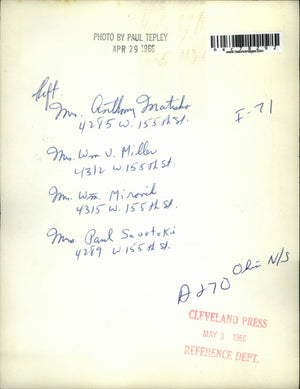 PHOTO BY PAUL TEPLEY
APR 29 1966
left.
Mrs. Anthony Matusko
4295 W. 155th St.
I-71
Mrs. Wm V. Miller
4312 W. 155th St.
Mrs. Wm. Mirovil
4315 W. 155th St.
Mrs Paul Savetski
4289 W. 155th St.
Ohio N/S
CLEVELAND PRESS
MAY 3 1966
REFERENCE DEPT.